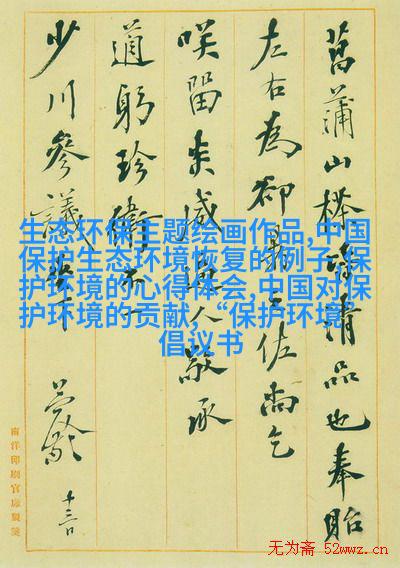 菖蒲山清品也奉貽
左右為卻之佐尚乞
咲留幸感人敬承
道躬珍衛不一
少川參議
十三日
南洋印刷官廠製箋
生态环保主题绘画作品,中国
保护生态环境恢复的例子,保
护环境的心得体会,中国对保
护环境的贡献,“保护环境”
倡议书
无为斋 52wwz.cn